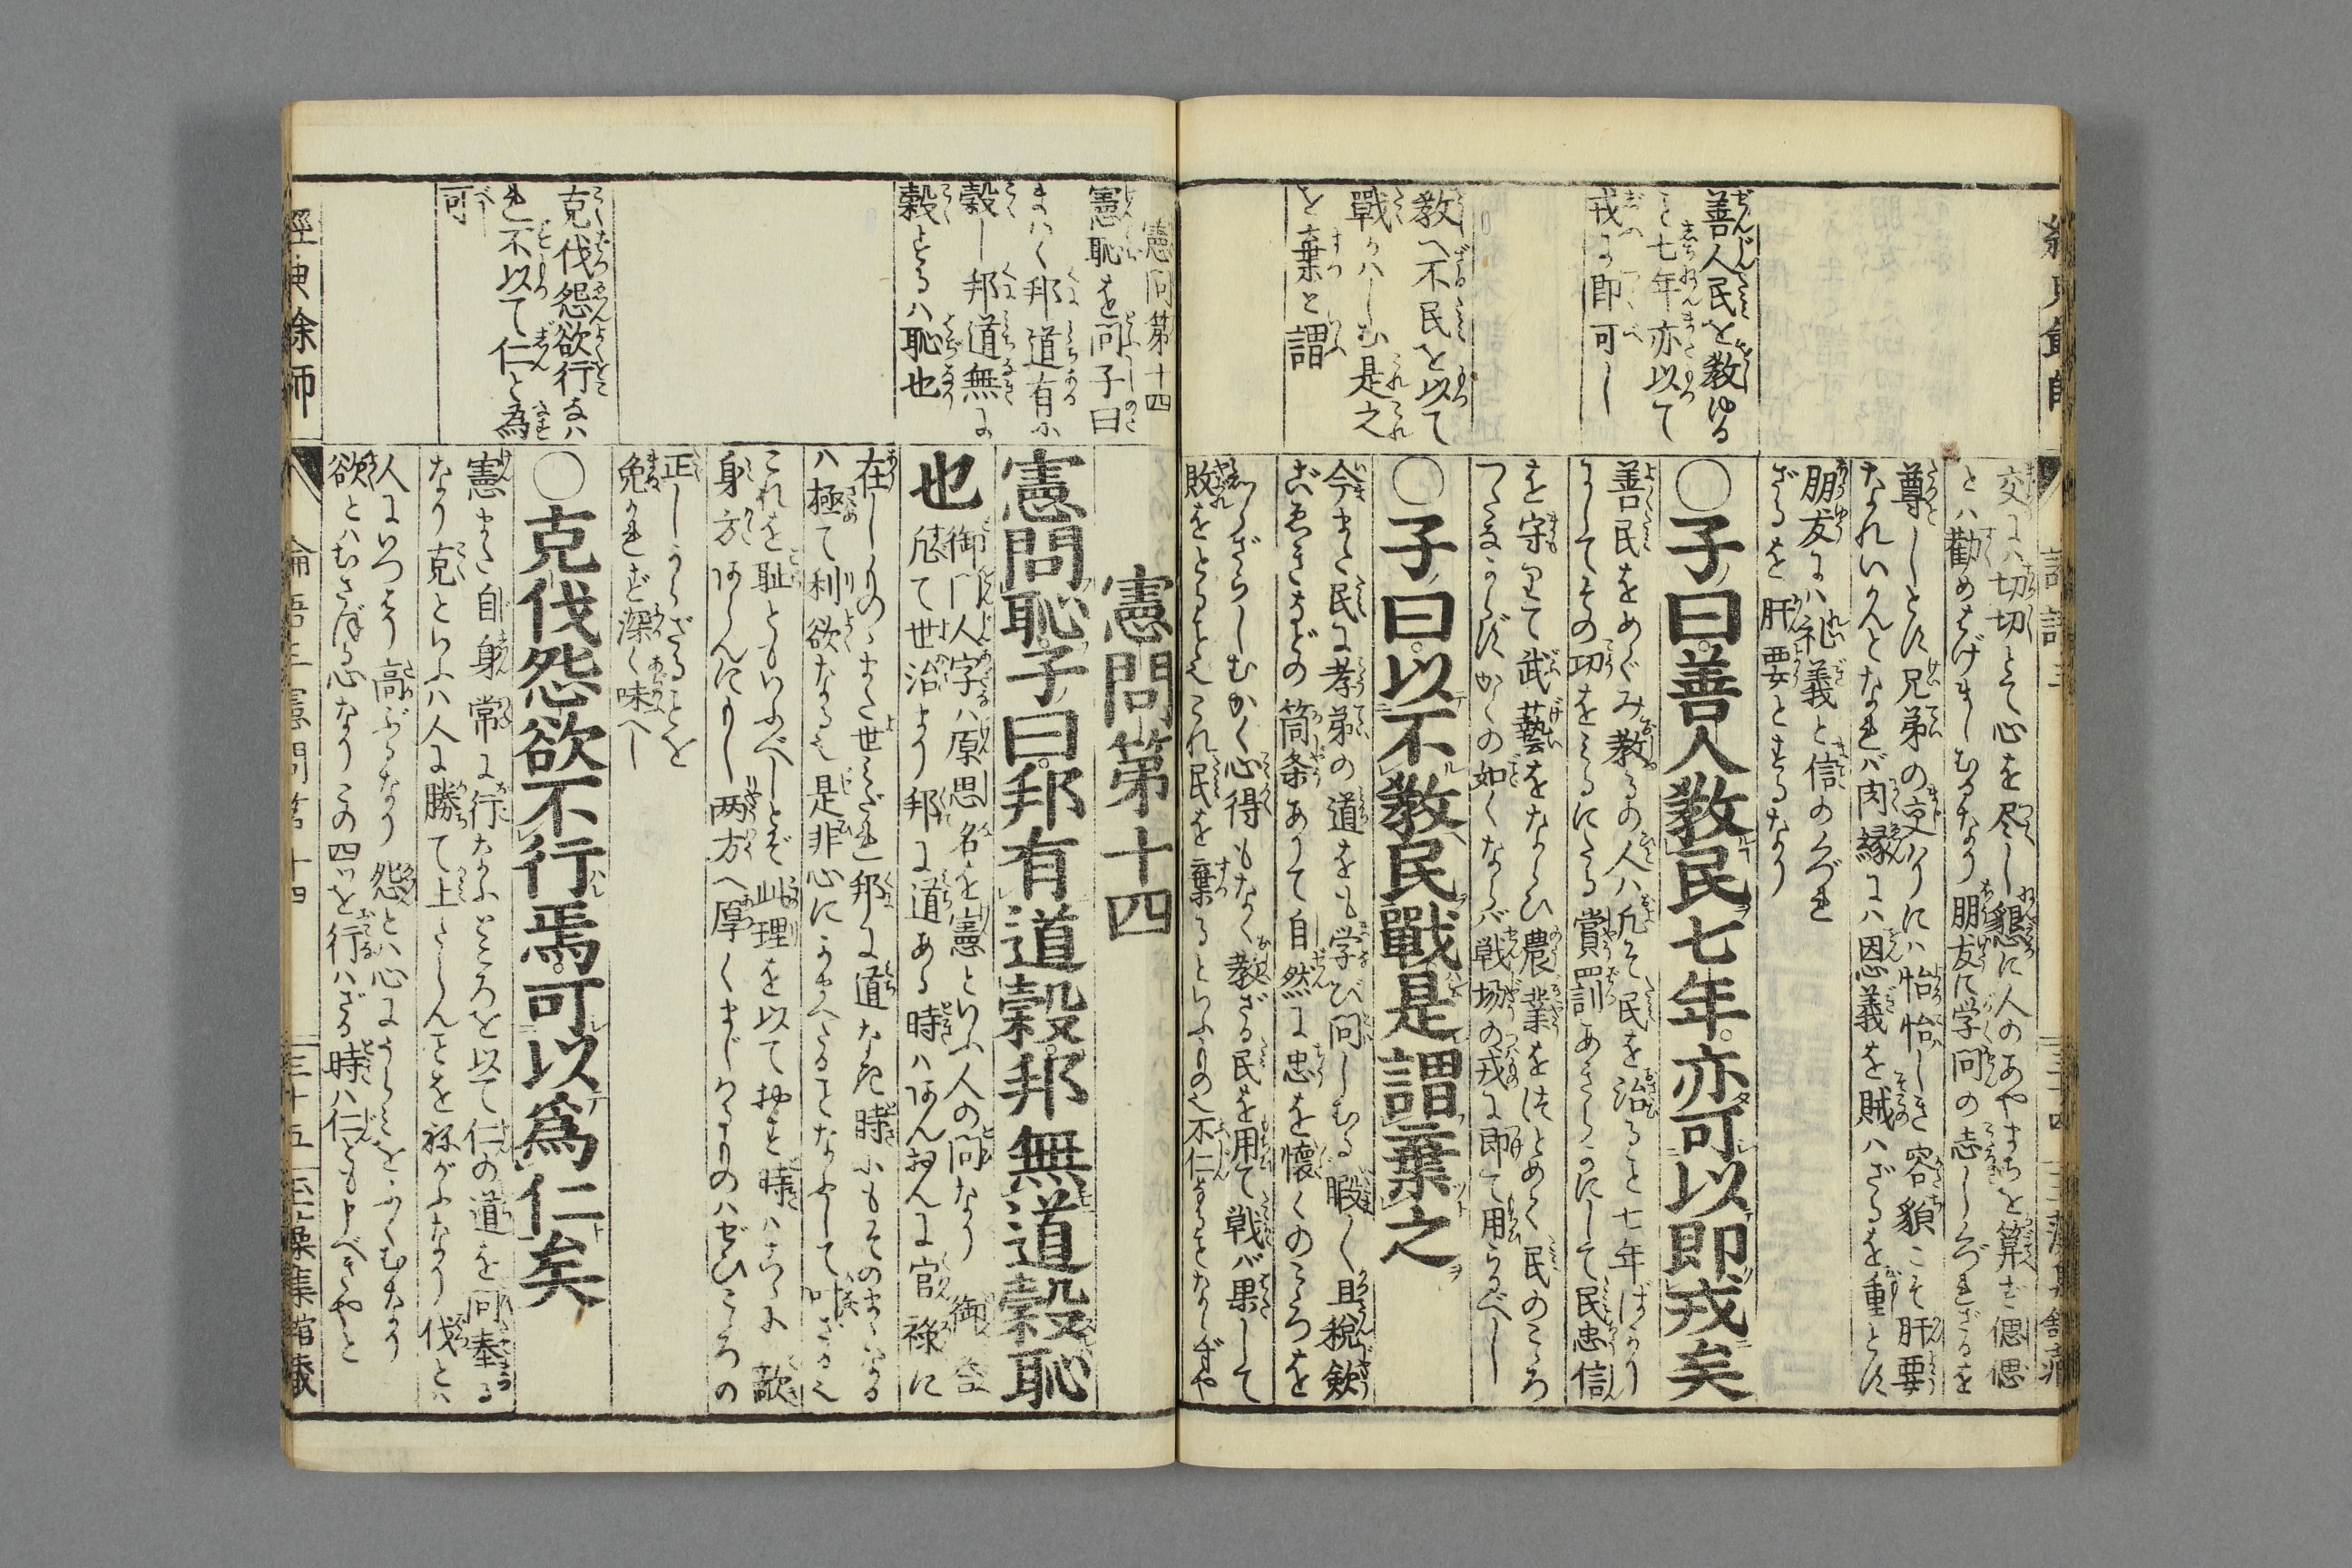 善人民を教ゆる
こと七年亦以て
戎に即可し
教へ不民を以て
戰ハしむ是之
を棄と謂
交にハ切切とて心を尽し懇に人のあやまちを算ず偲偲
とハ勧めはげましむるなり朋友に学問の志しくづれざるを
尊しとす兄弟の交ハりにハ怡怡しき容貌こそ肝要
なれいかんとなれバ肉縁にハ恩義を賊ハざるを重とす
朋友にハ礼義と信のくづれ
ざるを肝要とするなり
○子曰善人教民七年亦可以即戎矣
善民をめぐみ教るの人ハ凡そ民を治ること七年ばかり
にしてその功をみるにたる賞罰あきらかにして民忠信
を守りて武藝をならひ農業をつとめて民のこころ
つたなからずかくの如くならバ戦場の戎に即て用らるべし
○子曰以不教民戰是謂棄之
今また民に孝弟の道をも学び問しむる暇なく且税歛
筒条ありて自然に忠を懐くのこころを
つらざらしむかく心得もなく教ざる民を用て戦バ果して
敗をとることこれ民を棄るといふもの也不仁なることならずや
憲問第十四
憲恥を問子曰
まハく邦道有に
穀し邦道無に
穀するハ恥也
克伐怨欲行なハ
れ不以て仁と為
可
憲問第十四
憲問恥子曰邦有道穀邦無道穀恥
也
御門人字ハ原思名を憲といふ人の問なり御答
凡て世治より邦に道ある時ハなんぞんに官禄に
在しものまた世みだれ邦に道なき時にもそのままゐる
ハ極て利欲なる也是非心にかまへたることなふして叶ざる也
これを恥ともいふべしとぞ此理を以てみる時ハこちに歒
身方なしんにもし両方へ厚くまじわるものハぜひこころの
正しからざることを
免かれず深く味へし
○克伐怨欲不行焉可以爲仁矣
憲また自身常に行なふところを以て仁の道を問奉る
なり克といふハ人に勝て上たらんことを祢がふなり伐とハ
人にいつそう高ぶるなり怨とハ心にうらみをふくむなり
欲とハむさぼる心なりこの四ツを行ハざる時ハ仁とも申べきやと
經典余師
論語三憲問第十四
三十五